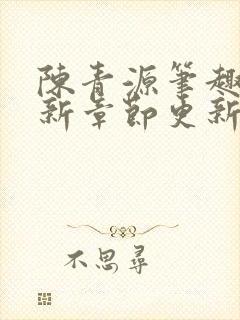 陳青源筆趣
新章節更新
不思尋